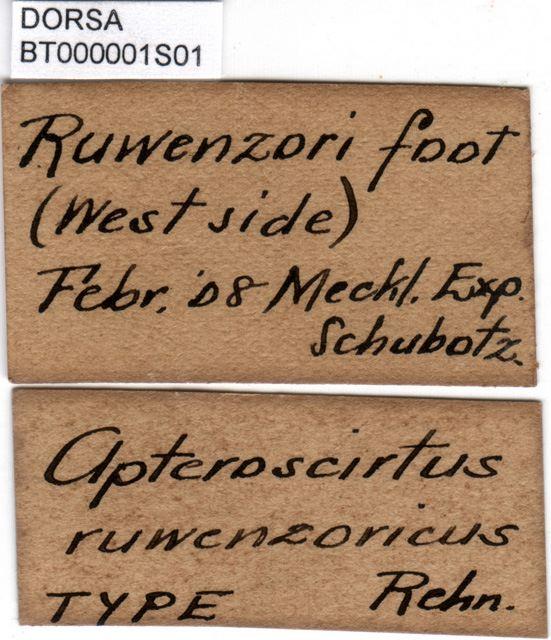 DORSA
BT000001S01
Ruwenzori foot
(West side)
Febr. '08 Meckl. Exp.
Schubotz.
Apteroscirtus
ruwenzoricus
TYPE Rehn.